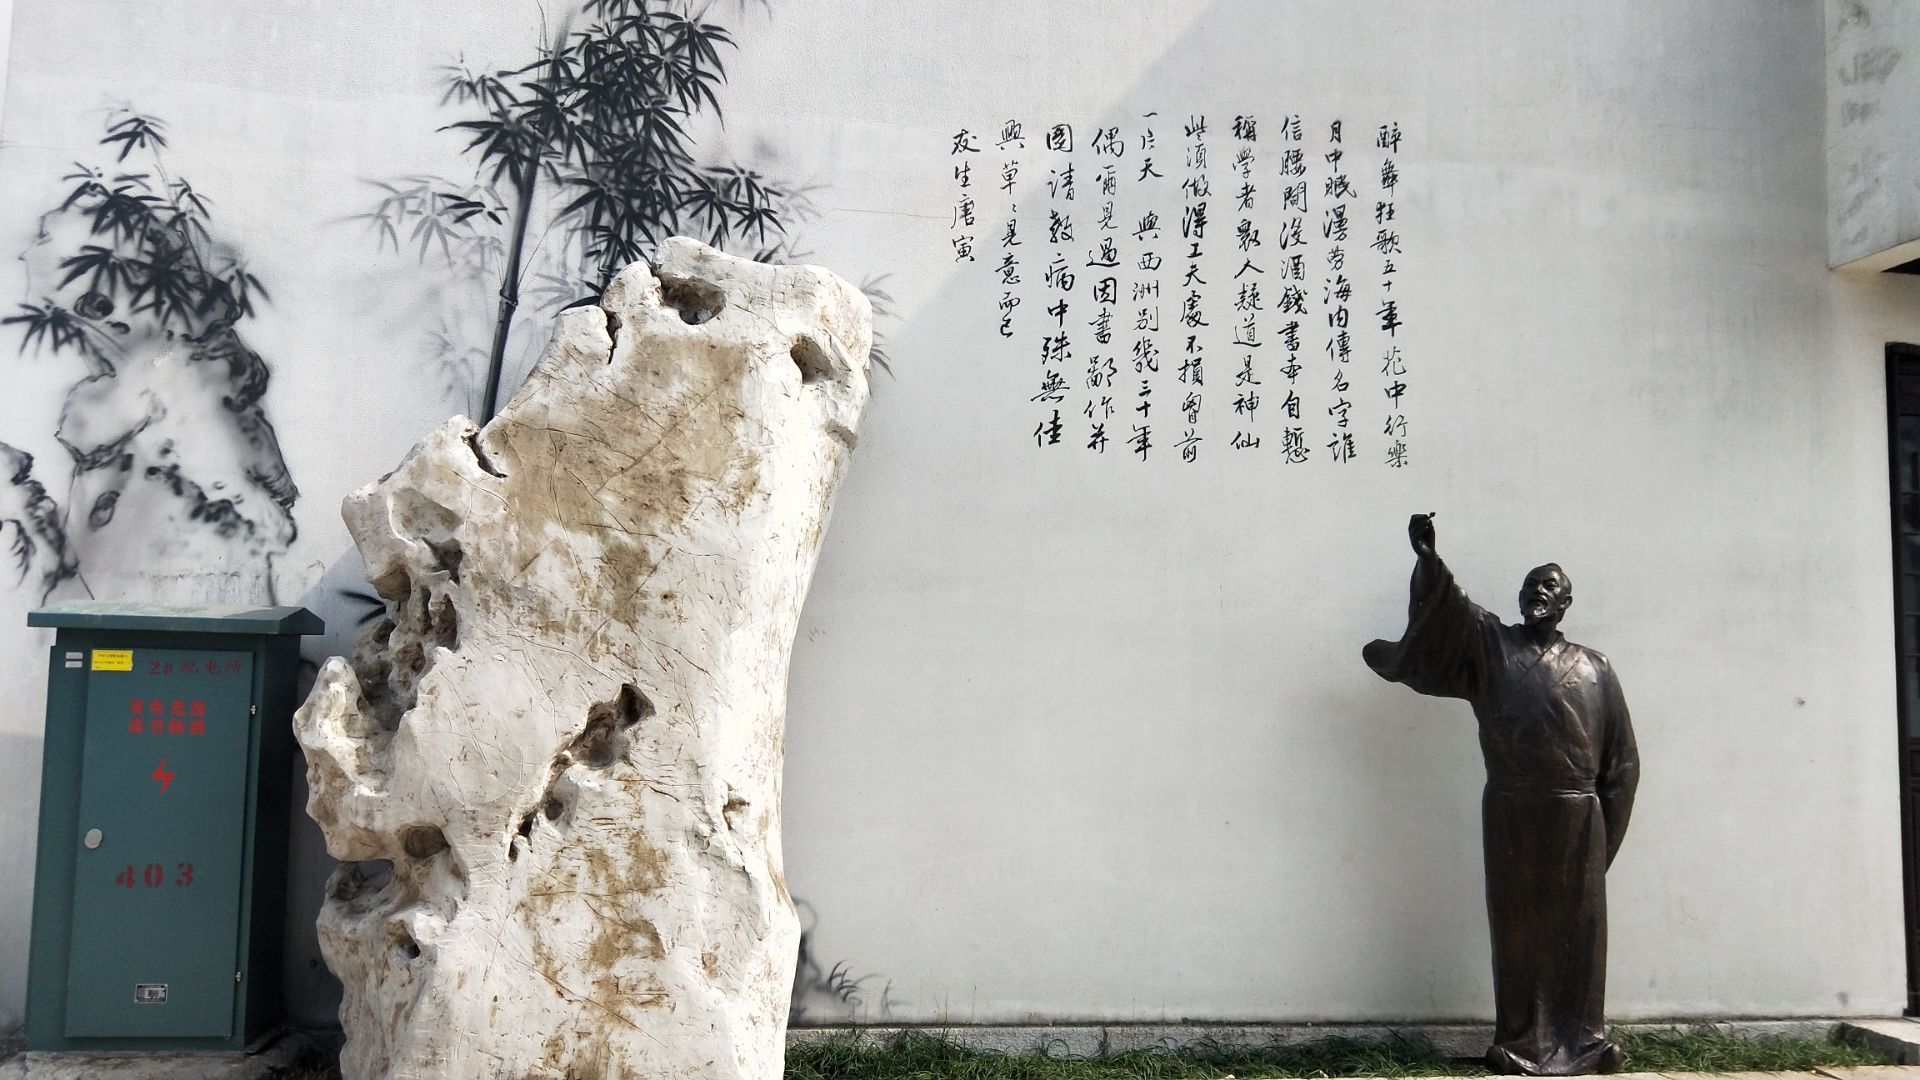 醉舞狂歌五十年花中行樂
月中眠漫勞海內傳名字誰
信腰間沒酒錢書本自慙
稱學者衆人疑道是神仙
些須做得工夫處不損胸前
一片天 與西洲別幾三十年
偶爾見過因書鄙作并
圖請教病中殊無佳
興草〻見意而已
友生唐寅
配电所
有电危险
请勿触摸
403